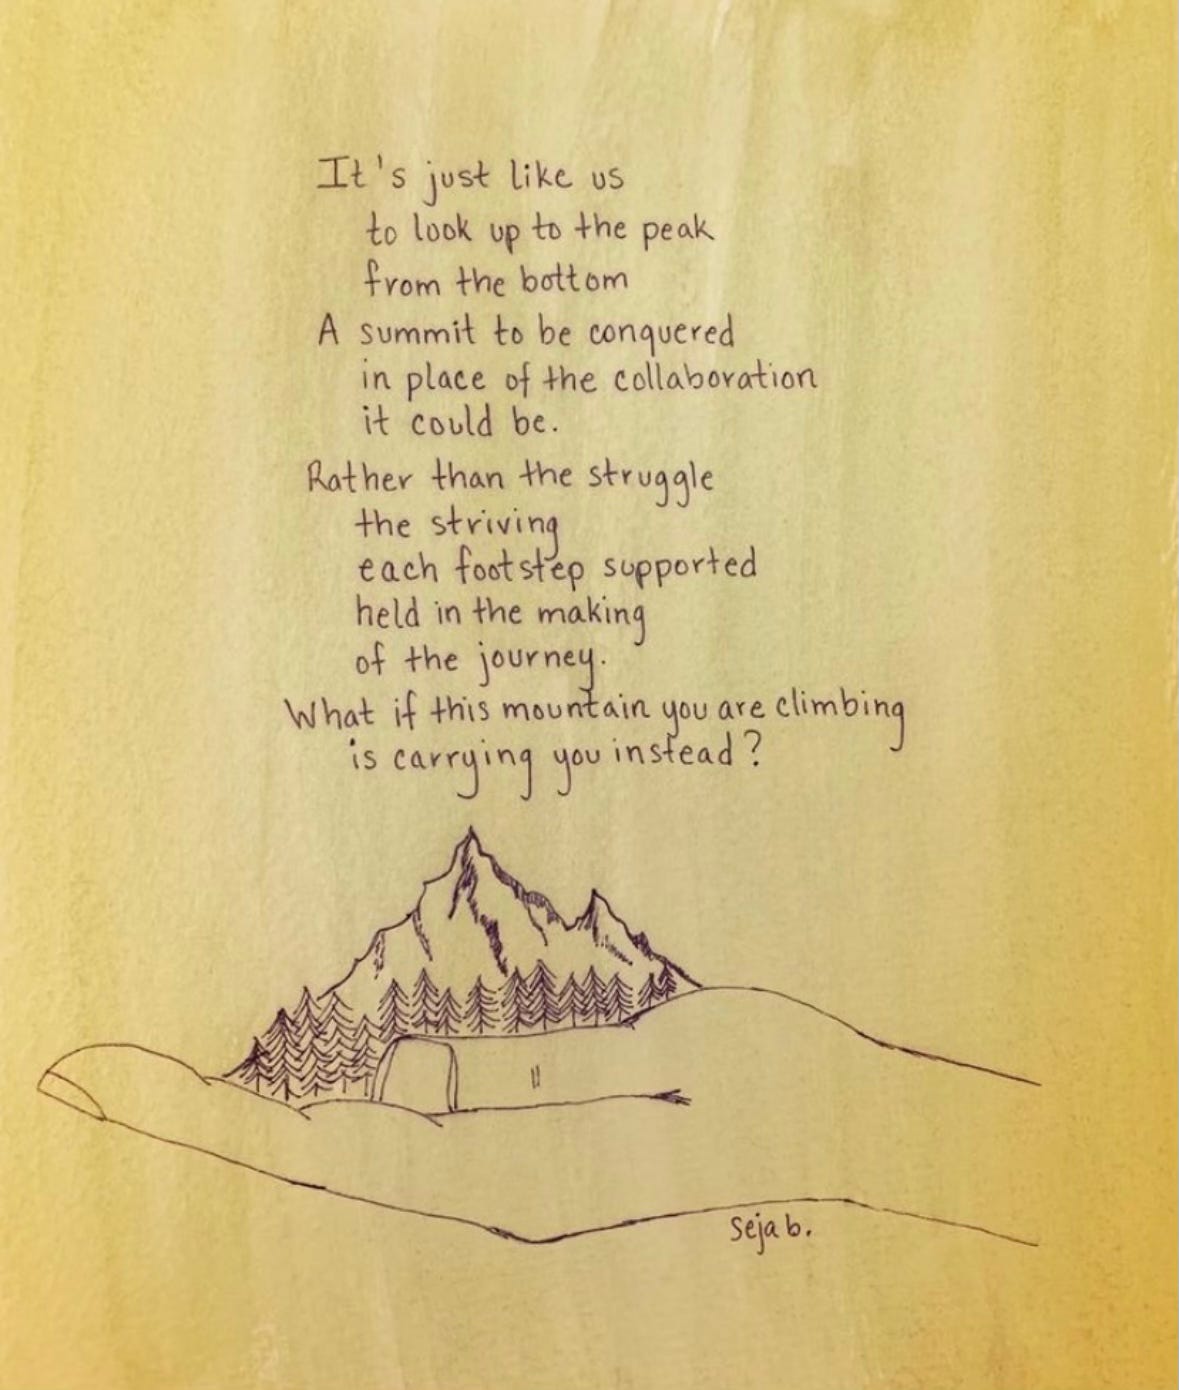 It's just like us
to look up to the peak
from the bottom
A summit to be conquered
in place of the collaboration
it could be.
Rather than the struggle
the striving
each footstep supported
held in the making
of the journey.
What if this mountain you are climbing
is carrying you instead?
Seja b.